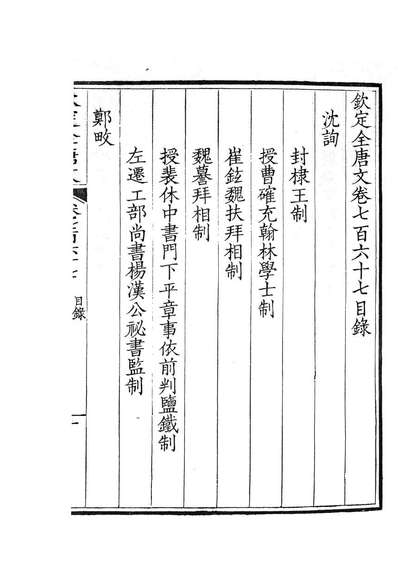 欽定全唐文卷七百六十七目錄
沈詢
封棣王制
授曹確充翰林學士制
崔鉉魏扶拜相制
魏謩拜相制
授裴休中書門下平章事依前判鹽鐵制
左遷工部尚書楊漢公祕書監制
鄭畋
目錄